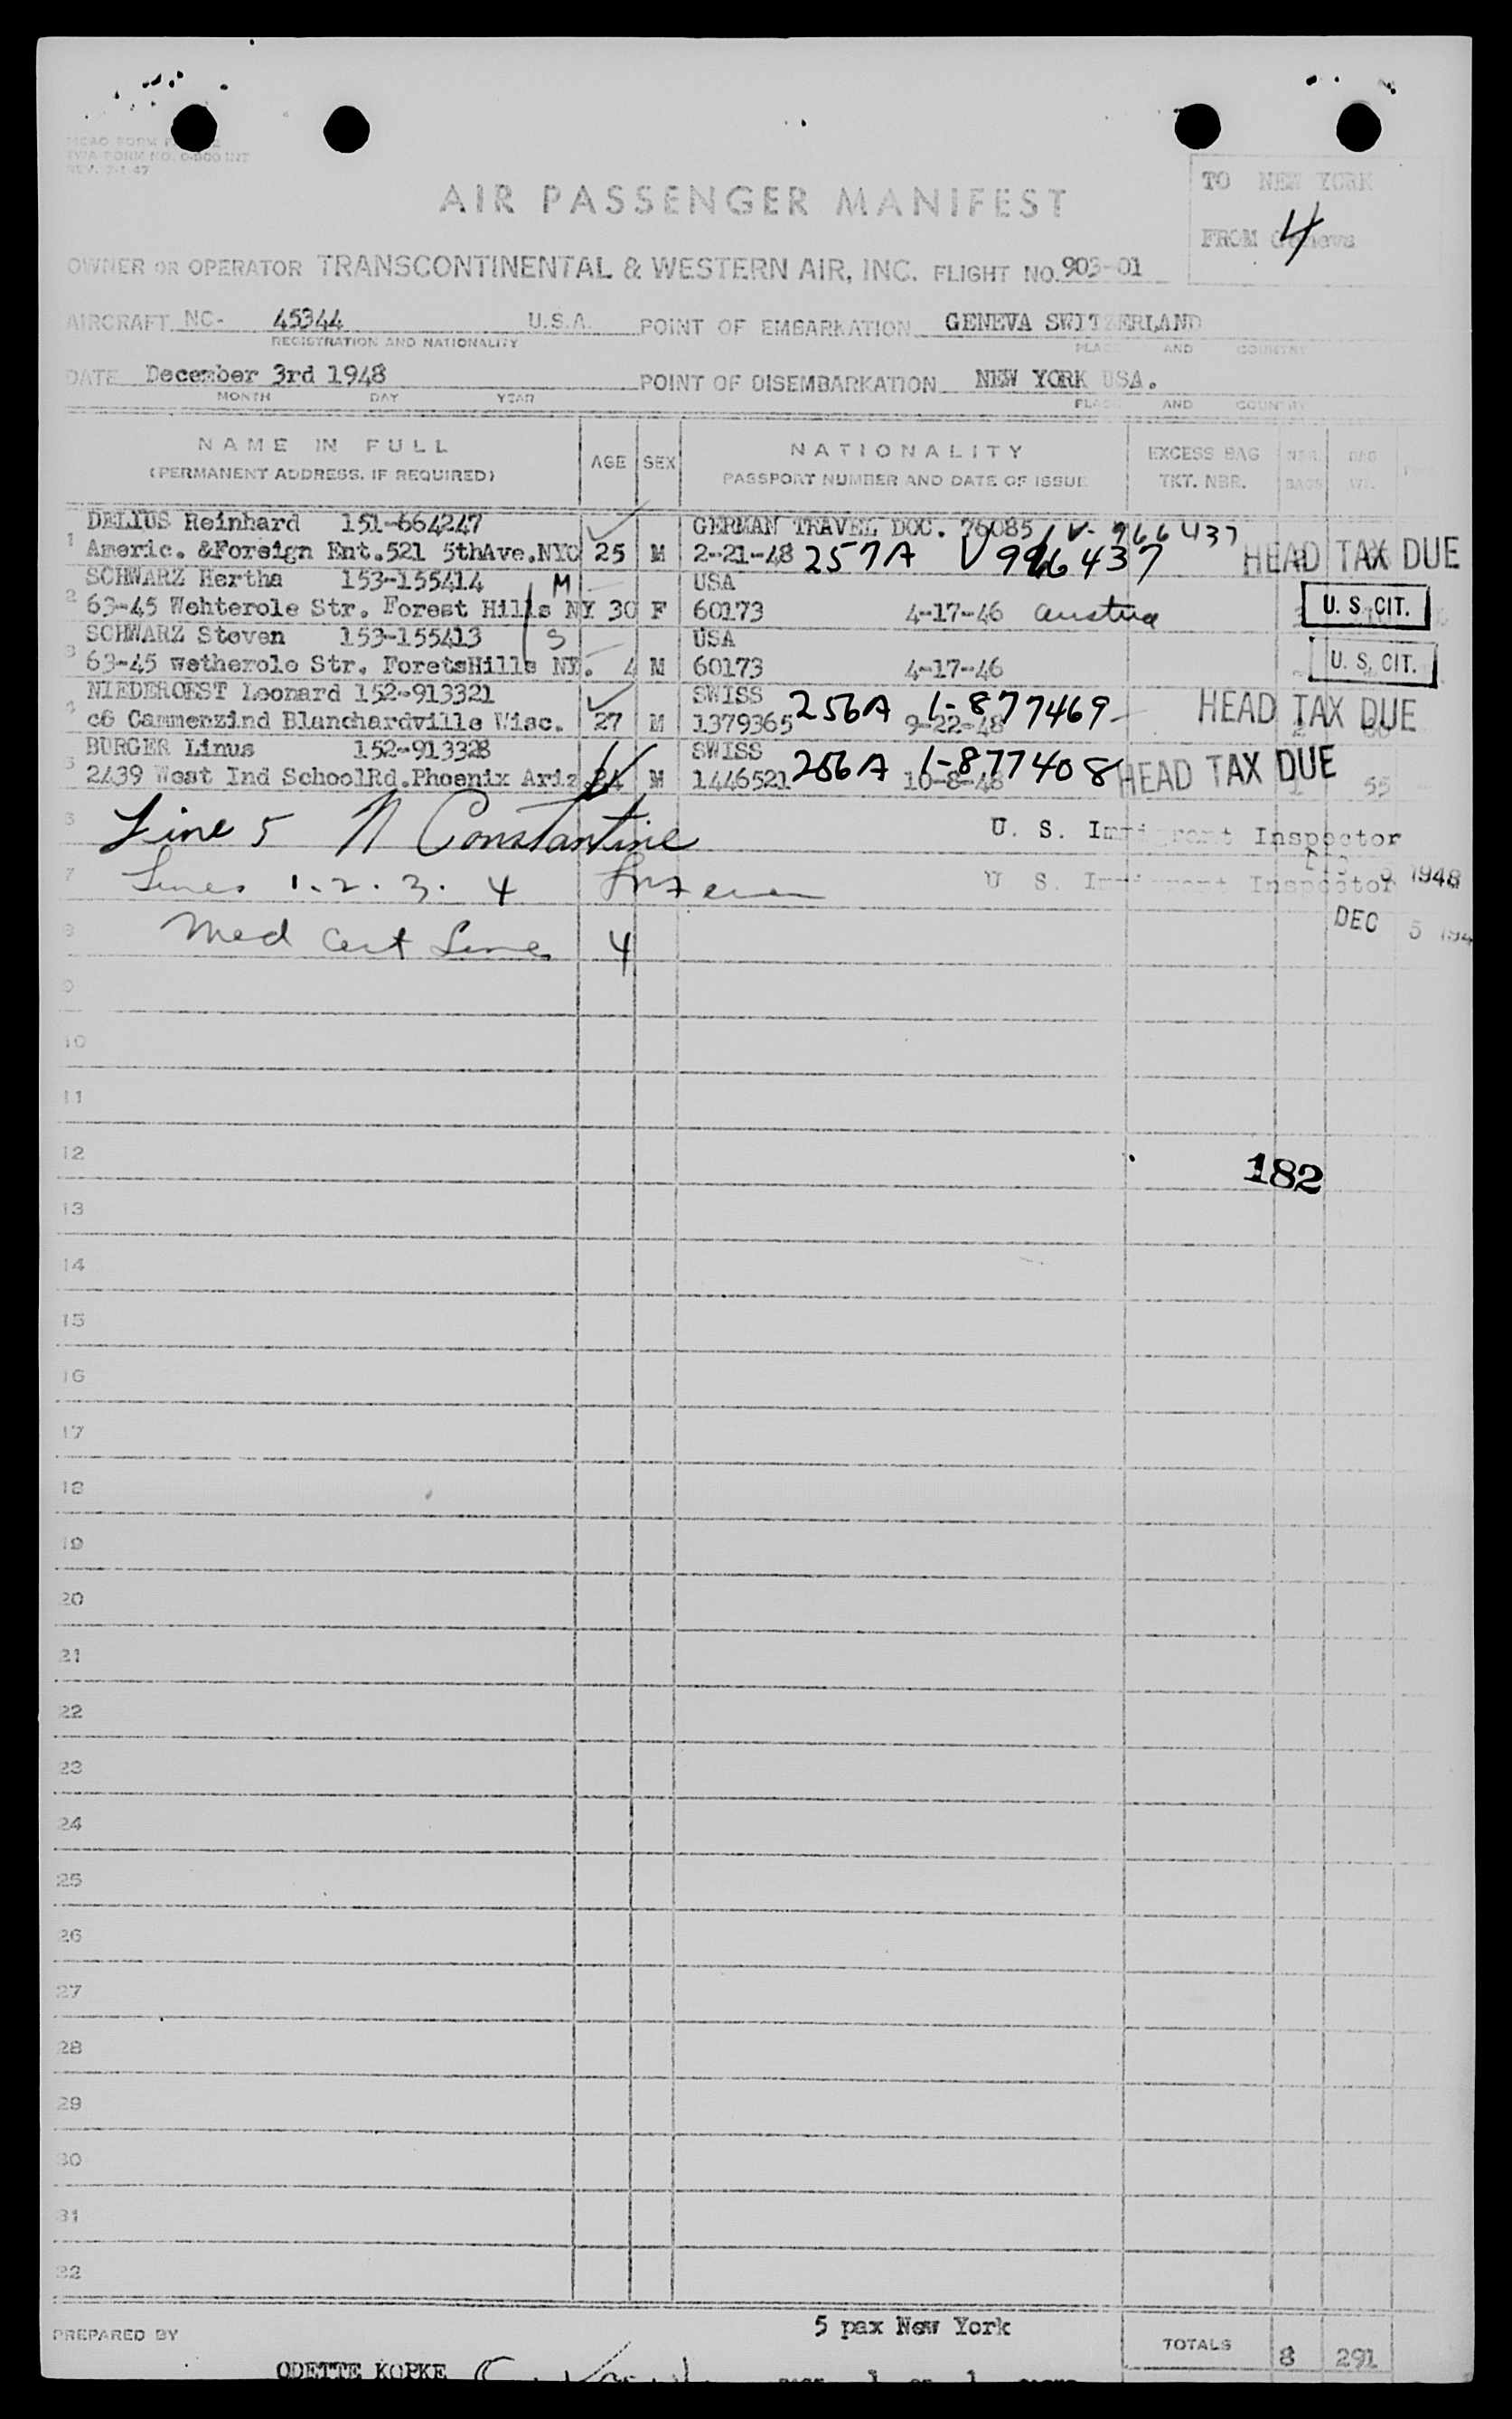 TWA FORM NO. 0-800 INT
REV. 7-1-47
TO NEW YORK
FROM Geneva
4
AIR PASSENGER MANIFEST
OWNER OR OPERATOR TRANSCONTINENTAL & WESTERN AIR, INC. FLIGHT NO. 903-01
AIRCRAFT NC- 45344 U.S.A. POINT OF EMBARKATION GENEVA SWITZERLAND
REGISTRATION AND NATIONALITY PLACE AND COUNTRY
DATE December 3rd 1948 POINT OF DISEMBARKATION NEW YORK USA.
MONTH DAY YEAR PLACE AND COUNTRY
NAME IN FULL AGE SEX NATIONALITY EXCESS BAG NBR. BAG
(PERMANENT ADDRESS, IF REQUIRED) PASSPORT NUMBER AND DATE OF ISSUE TKT. NBR. BAGS WT.
DELIUS Reinhard 151-664247 GERMAN TRAVEL DOC. 76085 / V- 966437
1 Americ. &Foreign Ent.521 5thAve.NYC 25 M 2-21-48 257A V 996437 HEAD TAX DUE
SCHWARZ Hertha 153-155414 M USA
2 63-45 Wehterole Str. Forest Hills NY 30 F 60173 4-17-46 Austria U. S. CIT.
SCHWARZ Steven 153-155413 S USA
3 63-45 wetherole Str. ForetsHills NY. 4 M 60173 4-17-46 U. S. CIT.
NIEDEROEST Leonard 152-913321 SWISS
4 co Cammenzind Blanchardville Wisc. 27 M 1379365 256A 9-22-48 I-877469 HEAD TAX DUE
BURGER Linus 152-913328 SWISS
5 2439 West Ind SchoolRd.Phoenix Ariz 24 M 1446521 256A 10-8-48 I-877408 HEAD TAX DUE 1 55
6 Line 5 N Constantine U. S. Immigrant Inspector
7 Lines 1. 2. 3. 4 U. S. Immigrant Inspector 1948
8 Med Cert Line 4 DEC 5 194
9
10
11
12
182
13
14
15
16
17
18
19
20
21
22
23
24
25
26
27
28
29
30
31
32
5 pax New York
PREPARED BY TOTALS 8 291
ODETTE KOPKE PAGE 1 OF 1 PAGES